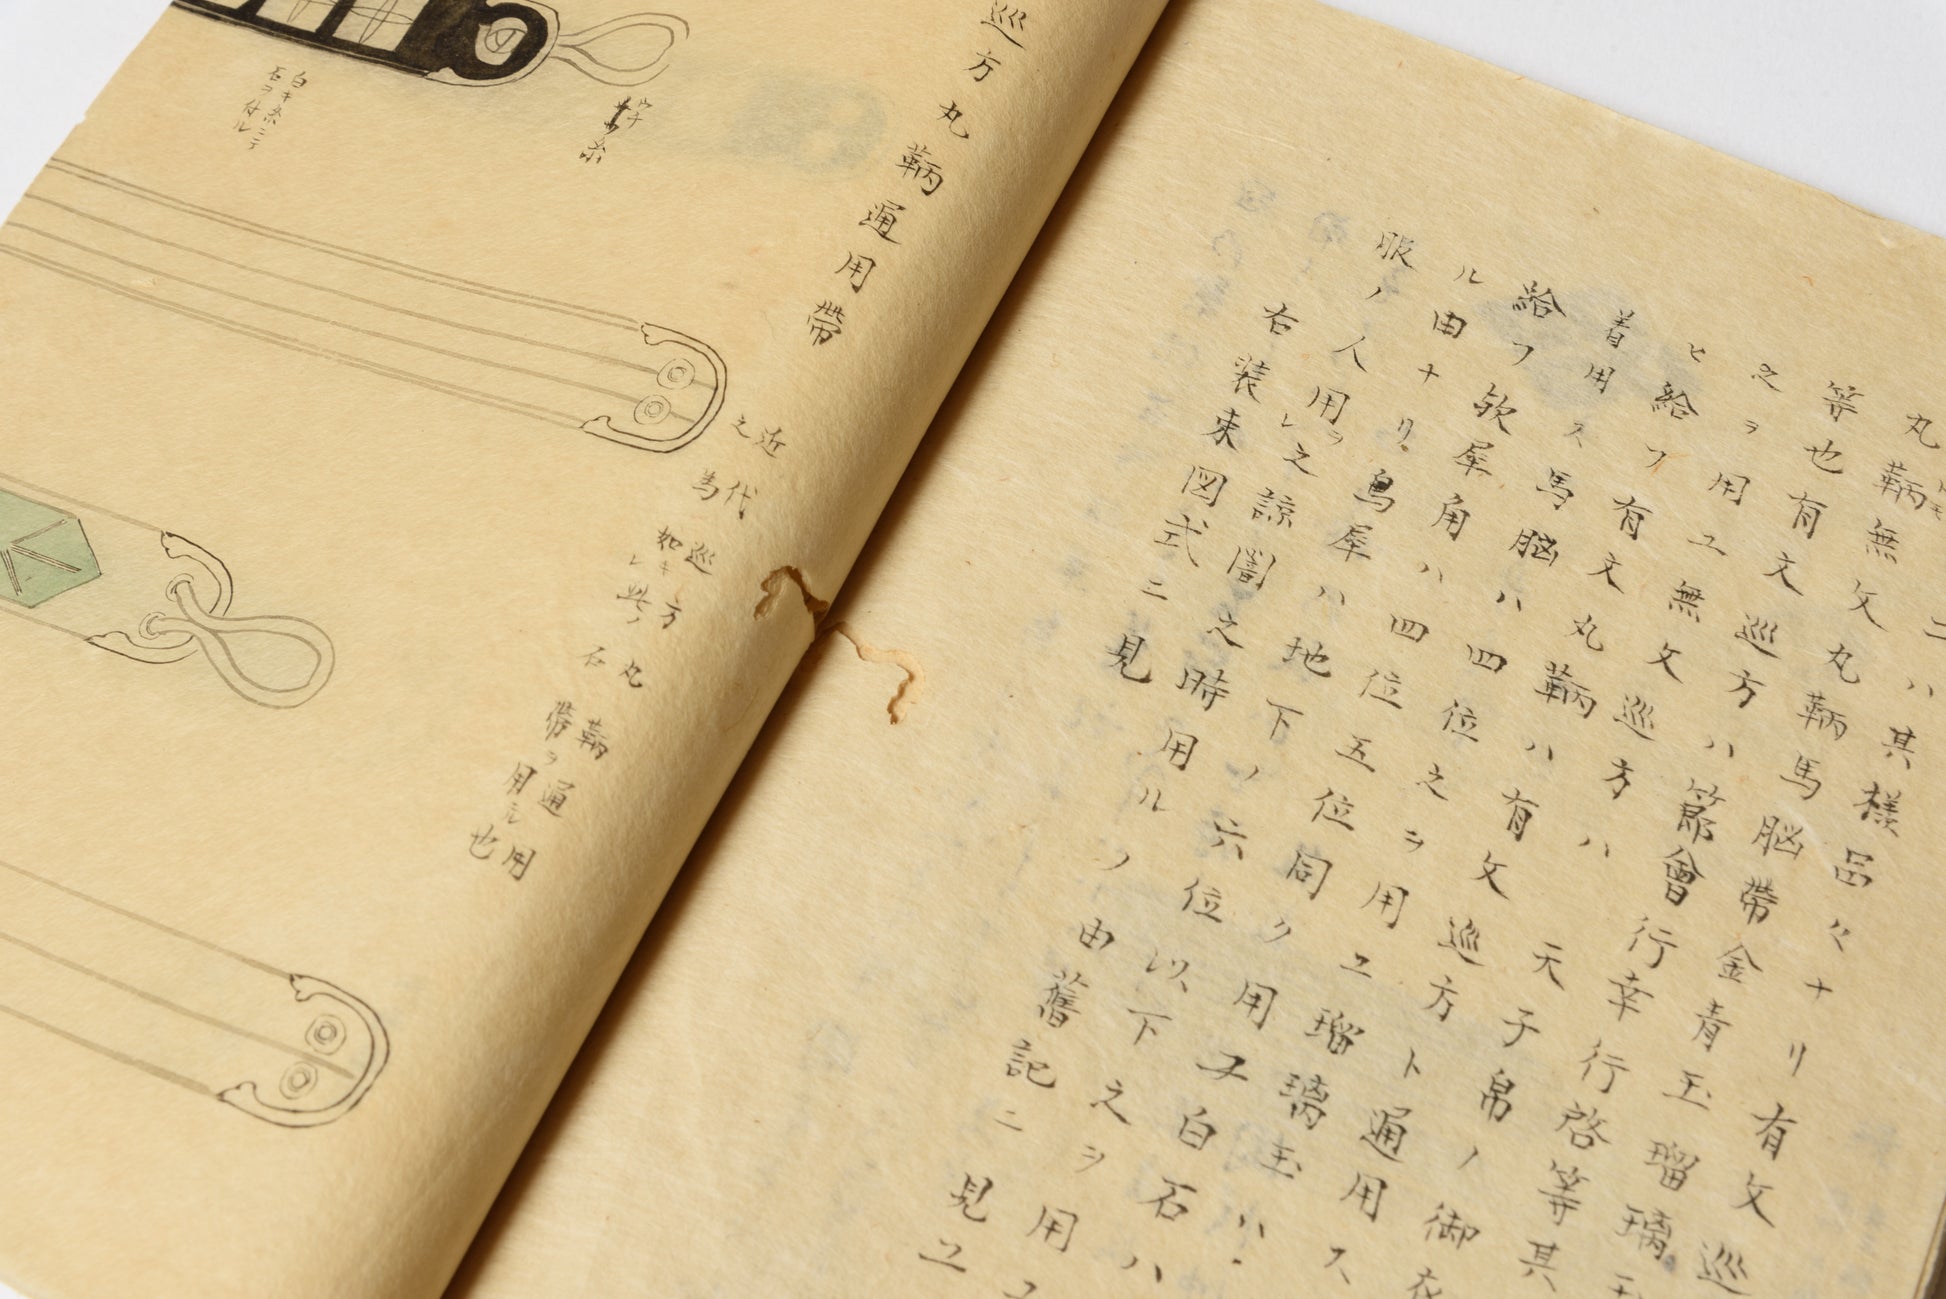 丸鞆
ニハ其様品々ナリ有文巡
等也有文丸鞆馬脳帯金青玉瑠璃
無文
之ヲ用ユ無文巡方ハ節會行幸行啓等其
ヒ給フ有文巡方ハ
着用ス馬脳ハ四位之ヲ用ユ瑠璃玉ハ
有文丸鞆ハ有文巡方ト通用ス
天子帛ノ御衣
給フ欤犀角ハ四位五位同ク用ユ白石ハ
ル由ナリ烏犀ハ地下ノ六位以下之ヲ用ユ
服ノ人用ヲ之諒闇之時用ルノ由舊記ニ見ユ
右装束図式ニ見
巡方丸鞆通用帯
近代巡方丸鞆通用
之為如此ノ石帯ヲ用ル也
ウチ
糸
白キ糸ニテ
石ヲ付ル